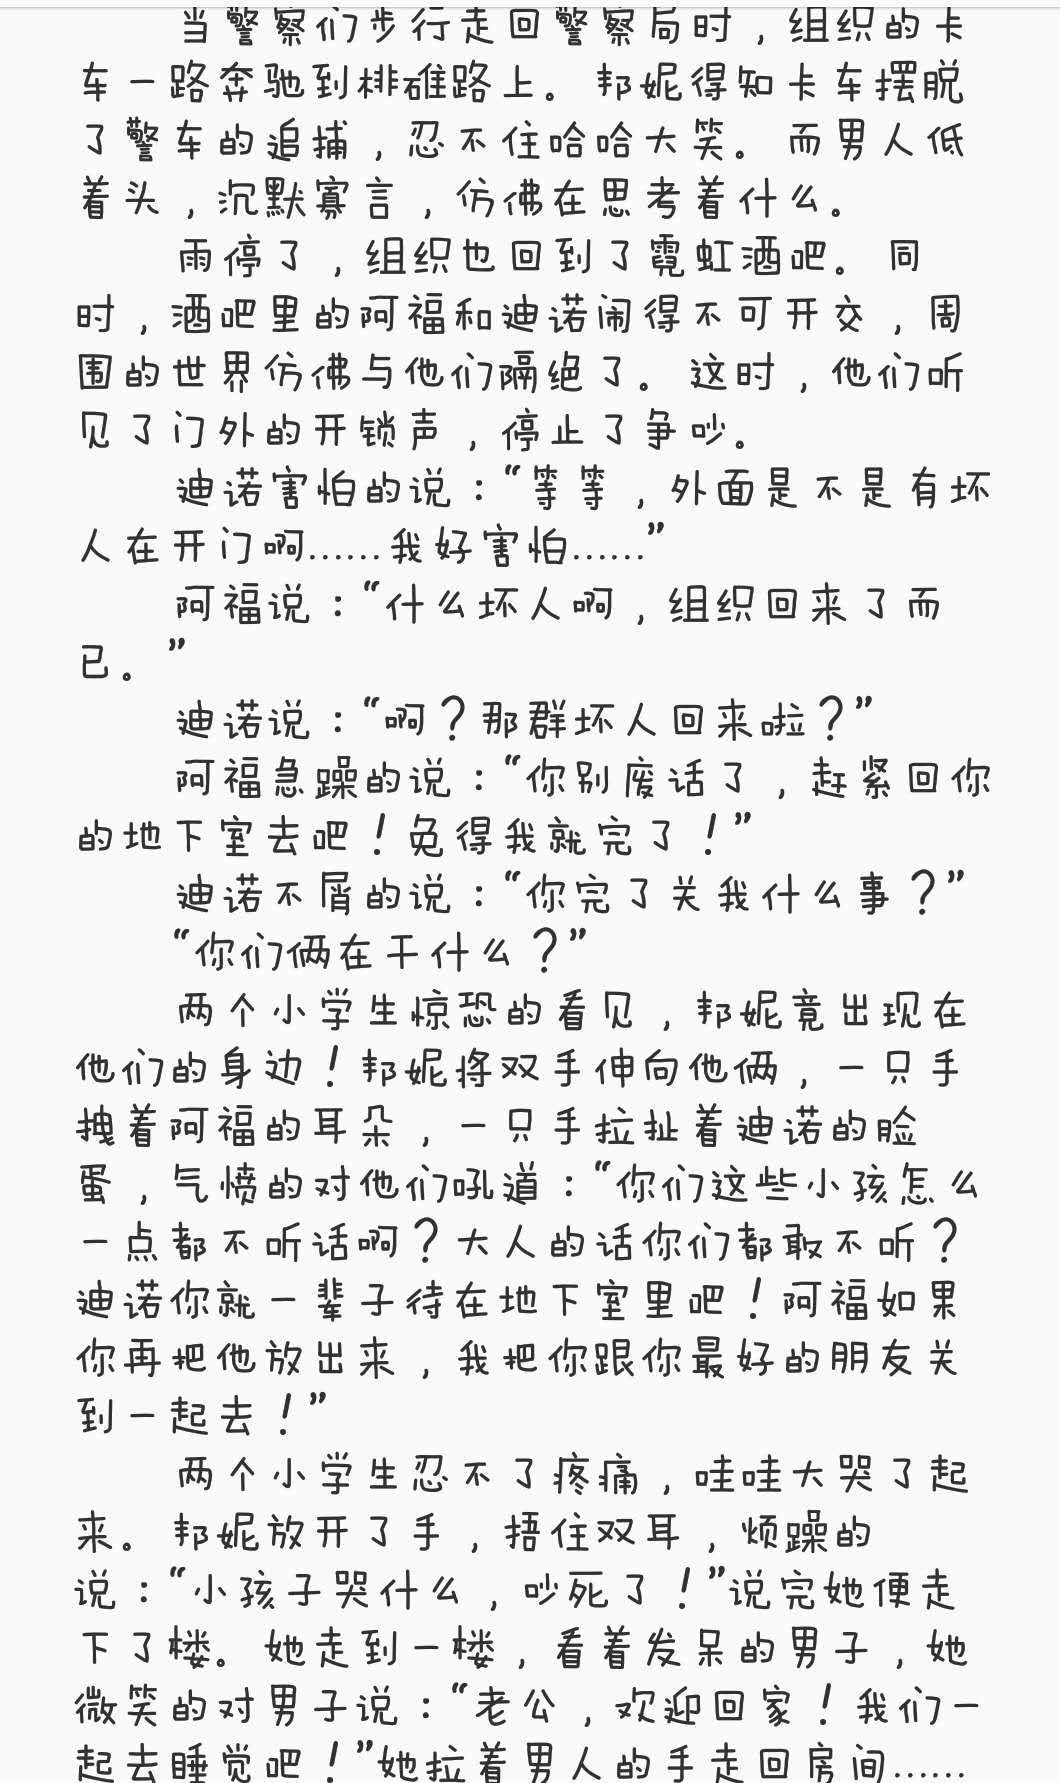 当警察们步行走回警察局时，组织的卡
车一路奔驰到排碓路上。邦妮得知卡车摆脱
了警车的追捕，忍不住哈哈大笑。而男人低
着头，沉默寡言，仿佛在思考着什么。
雨停了，组织也回到了霓虹酒吧。同
时，酒吧里的阿福和迪诺闹得不可开交，周
围的世界仿佛与他们隔绝了。这时，他们听
见了门外的开锁声，停止了争吵。
迪诺害怕的说：“等等，外面是不是有坏
人在开门啊……我好害怕……”
阿福说：“什么坏人啊，组织回来了而
已。”
迪诺说：“啊？那群坏人回来啦？”
阿福急躁的说：“你别废话了，赶紧回你
的地下室去吧！免得我就完了！”
迪诺不屑的说：“你完了关我什么事？”
“你们俩在干什么？”
两个小学生惊恐的看见，邦妮竟出现在
他们的身边！邦妮将双手伸向他俩，一只手
拽着阿福的耳朵，一只手拉扯着迪诺的脸
蛋，气愤的对他们吼道：“你们这些小孩怎么
一点都不听话啊？大人的话你们都敢不听？
迪诺你就一辈子待在地下室里吧！阿福如果
你再把他放出来，我把你跟你最好的朋友关
到一起去！”
两个小学生忍不了疼痛，哇哇大哭了起
来。邦妮放开了手，捂住双耳，烦躁的
说：“小孩子哭什么，吵死了！”说完她便走
下了楼。她走到一楼，看着发呆的男子，她
微笑的对男子说：“老公，欢迎回家！我们一
起去睡觉吧！”她拉着男人的手走回房间……